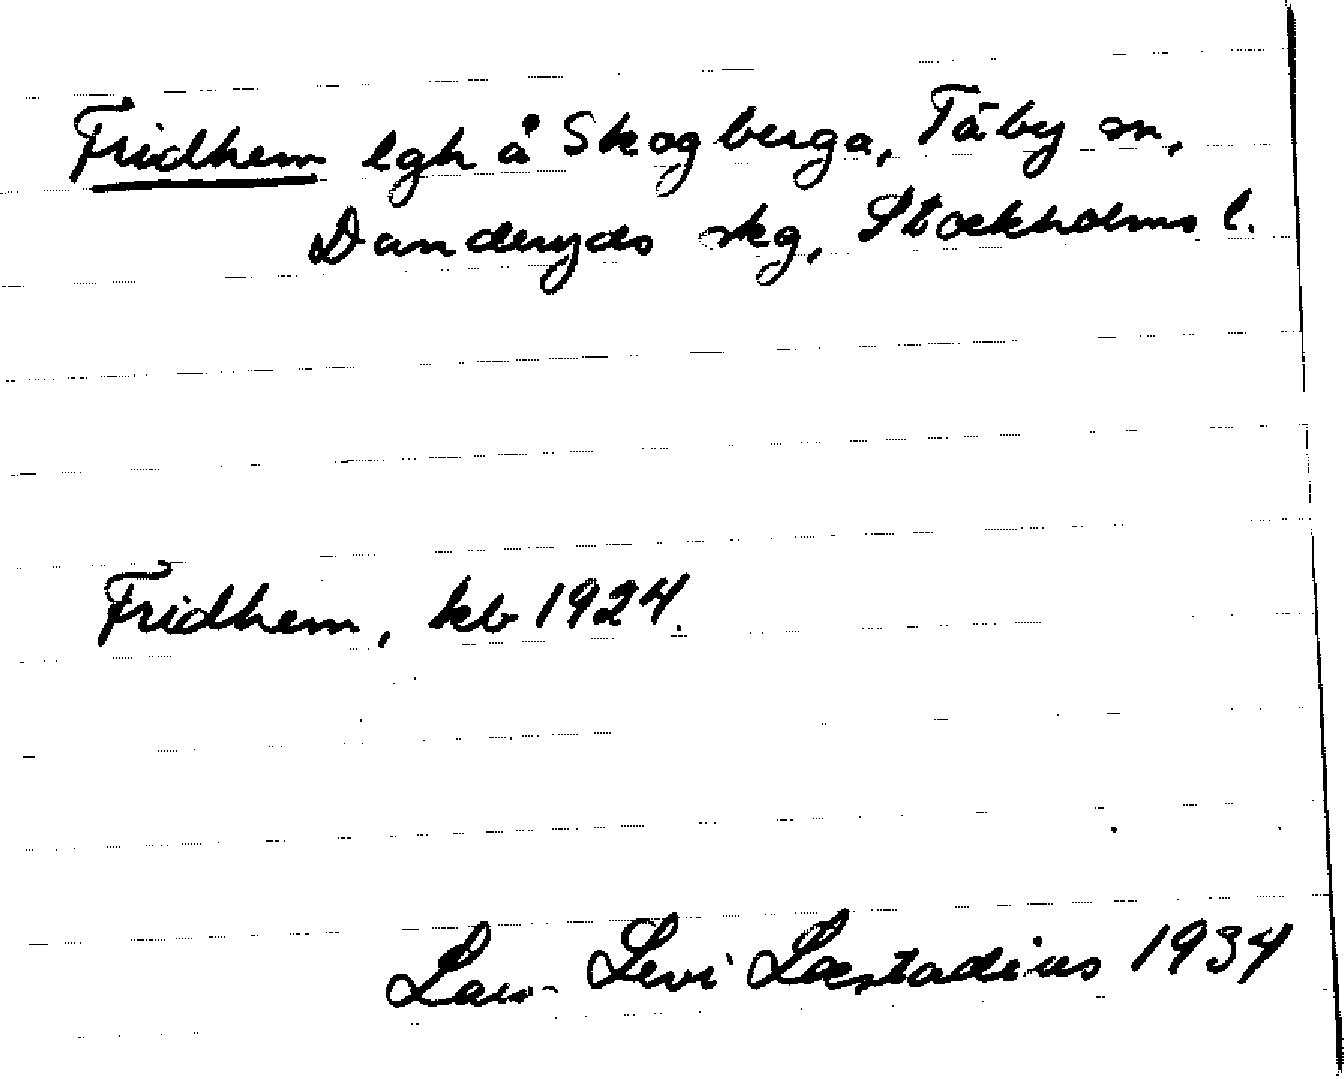 Fridhem lgh å Skogberga, Täby sn,
Danderyds skg, Stockholms l.
Fridhem, kb 1924.
Lars-Levi Læstadius 1934